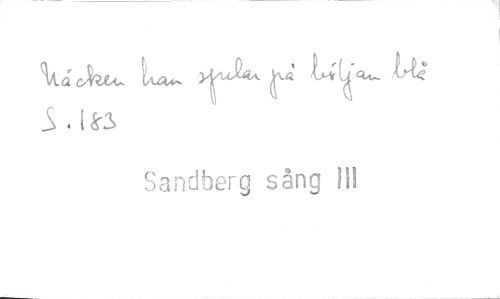 Näcken han spelar på böljan blå
S. 183
Sandberg sång III